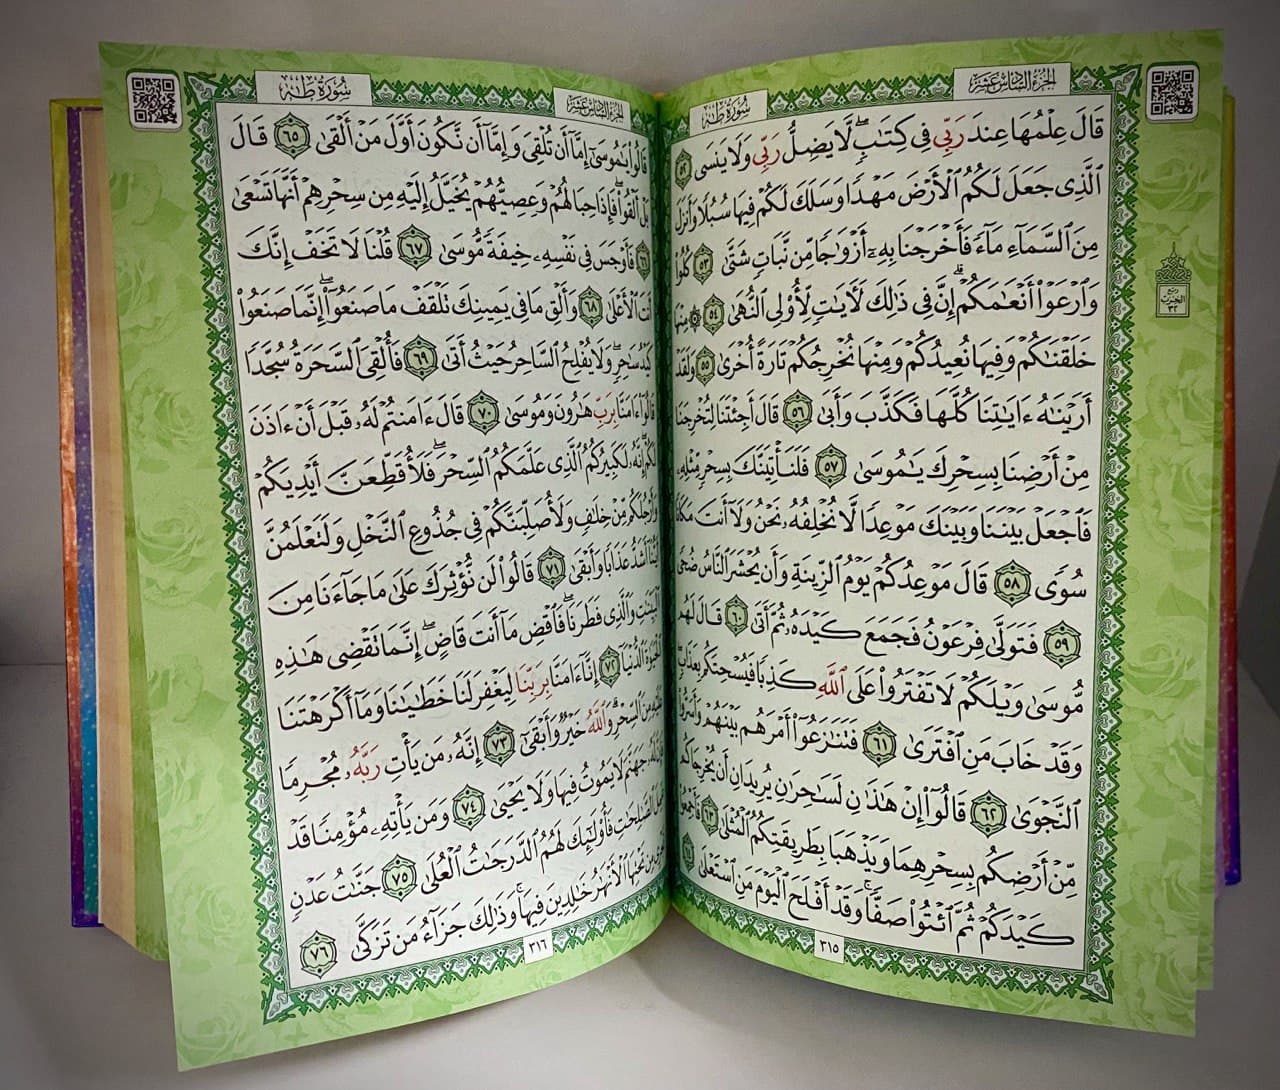 الجزء السادس عشر
سورة طه
قَالَ عِلْمُهَا عِندَ رَبِّى فِى كِتَٰبٍۖ لَّا يَضِلُّ رَبِّى وَلَا يَنسَى ٥٢
ٱلَّذِى جَعَلَ لَكُمُ ٱلْأَرْضَ مَهْدًا وَسَلَكَ لَكُمْ فِيهَا سُبُلًا وَأَنزَلَ
مِنَ ٱلسَّمَآءِ مَآءً فَأَخْرَجْنَا بِهِۦٓ أَزْوَٰجًا مِّن نَّبَاتٍ شَتَّىٰ ٥٣ كُلُوا۟
وَٱرْعَوْا۟ أَنْعَٰمَكُمْۗ إِنَّ فِى ذَٰلِكَ لَـَٔايَٰتٍ لِّأُو۟لِى ٱلنُّهَىٰ ٥٤ ۞ مِنْهَا
خَلَقْنَٰكُمْ وَفِيهَا نُعِيدُكُمْ وَمِنْهَا نُخْرِجُكُمْ تَارَةً أُخْرَىٰ ٥٥ وَلَقَدْ
أَرَيْنَٰهُ ءَايَٰتِنَا كُلَّهَا فَكَذَّبَ وَأَبَىٰ ٥٦ قَالَ أَجِئْتَنَا لِتُخْرِجَنَا
مِنْ أَرْضِنَا بِسِحْرِكَ يَٰمُوسَىٰ ٥٧ فَلَنَأْتِيَنَّكَ بِسِحْرٍ مِّثْلِهِۦ
فَٱجْعَلْ بَيْنَنَا وَبَيْنَكَ مَوْعِدًا لَّا نُخْلِفُهُۥ نَحْنُ وَلَآ أَنتَ مَكَانًا
سُوًى ٥٨ قَالَ مَوْعِدُكُمْ يَوْمُ ٱلزِّينَةِ وَأَن يُحْشَرَ ٱلنَّاسُ ضُحًى
٥٩ فَتَوَلَّىٰ فِرْعَوْنُ فَجَمَعَ كَيْدَهُۥ ثُمَّ أَتَىٰ ٦٠ قَالَ لَهُم
مُّوسَىٰ وَيْلَكُمْ لَا تَفْتَرُوا۟ عَلَى ٱللَّهِ كَذِبًا فَيُسْحِتَكُم بِعَذَابٍۖ
وَقَدْ خَابَ مَنِ ٱفْتَرَىٰ ٦١ فَتَنَٰزَعُوٓا۟ أَمْرَهُم بَيْنَهُمْ وَأَسَرُّوا۟
ٱلنَّجْوَىٰ ٦٢ قَالُوٓا۟ إِنْ هَٰذَٰنِ لَسَٰحِرَٰنِ يُرِيدَانِ أَن يُخْرِجَاكُم
مِّنْ أَرْضِكُم بِسِحْرِهِمَا وَيَذْهَبَا بِطَرِيقَتِكُمُ ٱلْمُثْلَىٰ ٦٣ فَأَجْمِعُوا۟
كَيْدَكُمْ ثُمَّ ٱئْتُوا۟ صَفًّاۚ وَقَدْ أَفْلَحَ ٱلْيَوْمَ مَنِ ٱسْتَعْلَىٰ ٦٤
٣١٥
ربع
الحزب
٣٢
الجزء السادس عشر
سورة طه
قَالُوا۟ يَٰمُوسَىٰٓ إِمَّآ أَن تُلْقِىَ وَإِمَّآ أَن نَّكُونَ أَوَّلَ مَنْ أَلْقَىٰ ٦٥ قَالَ
بَلْ أَلْقُوا۟ۖ فَإِذَا حِبَالُهُمْ وَعِصِيُّهُمْ يُخَيَّلُ إِلَيْهِ مِن سِحْرِهِمْ أَنَّهَا تَسْعَىٰ
٦٦ فَأَوْجَسَ فِى نَفْسِهِۦ خِيفَةً مُّوسَىٰ ٦٧ قُلْنَا لَا تَخَفْ إِنَّكَ
أَنتَ ٱلْأَعْلَىٰ ٦٨ وَأَلْقِ مَا فِى يَمِينِكَ تَلْقَفْ مَا صَنَعُوٓا۟ۖ إِنَّمَا صَنَعُوا۟
كَيْدُ سَٰحِرٍۖ وَلَا يُفْلِحُ ٱلسَّاحِرُ حَيْثُ أَتَىٰ ٦٩ فَأُلْقِىَ ٱلسَّحَرَةُ سُجَّدًا
قَالُوٓا۟ ءَامَنَّا بِرَبِّ هَٰرُونَ وَمُوسَىٰ ٧٠ قَالَ ءَامَنتُمْ لَهُۥ قَبْلَ أَنْ ءَاذَنَ
لَكُمْۖ إِنَّهُۥ لَكَبِيرُكُمُ ٱلَّذِى عَلَّمَكُمُ ٱلسِّحْرَۖ فَلَأُقَطِّعَنَّ أَيْدِيَكُمْ
وَأَرْجُلَكُم مِّنْ خِلَٰفٍ وَلَأُصَلِّبَنَّكُمْ فِى جُذُوعِ ٱلنَّخْلِ وَلَتَعْلَمُنَّ
أَيُّنَآ أَشَدُّ عَذَابًا وَأَبْقَىٰ ٧١ قَالُوا۟ لَن نُّؤْثِرَكَ عَلَىٰ مَا جَآءَنَا مِنَ
ٱلْبَيِّنَٰتِ وَٱلَّذِى فَطَرَنَاۖ فَٱقْضِ مَآ أَنتَ قَاضٍۖ إِنَّمَا تَقْضِى هَٰذِهِ
ٱلْحَيَوٰةَ ٱلدُّنْيَآ ٧٢ إِنَّآ ءَامَنَّا بِرَبِّنَا لِيَغْفِرَ لَنَا خَطَٰيَٰنَا وَمَآ أَكْرَهْتَنَا
عَلَيْهِ مِنَ ٱلسِّحْرِۗ وَٱللَّهُ خَيْرٌ وَأَبْقَىٰٓ ٧٣ إِنَّهُۥ مَن يَأْتِ رَبَّهُۥ مُجْرِمًا
فَإِنَّ لَهُۥ جَهَنَّمَ لَا يَمُوتُ فِيهَا وَلَا يَحْيَىٰ ٧٤ وَمَن يَأْتِهِۦ مُؤْمِنًا قَدْ
عَمِلَ ٱلصَّٰلِحَٰتِ فَأُو۟لَٰٓئِكَ لَهُمُ ٱلدَّرَجَٰتُ ٱلْعُلَىٰ ٧٥ جَنَّٰتُ عَدْنٍ
تَجْرِى مِن تَحْتِهَا ٱلْأَنْهَٰرُ خَٰلِدِينَ فِيهَاۚ وَذَٰلِكَ جَزَآءُ مَن تَزَكَّىٰ ٧٦
٣١٦